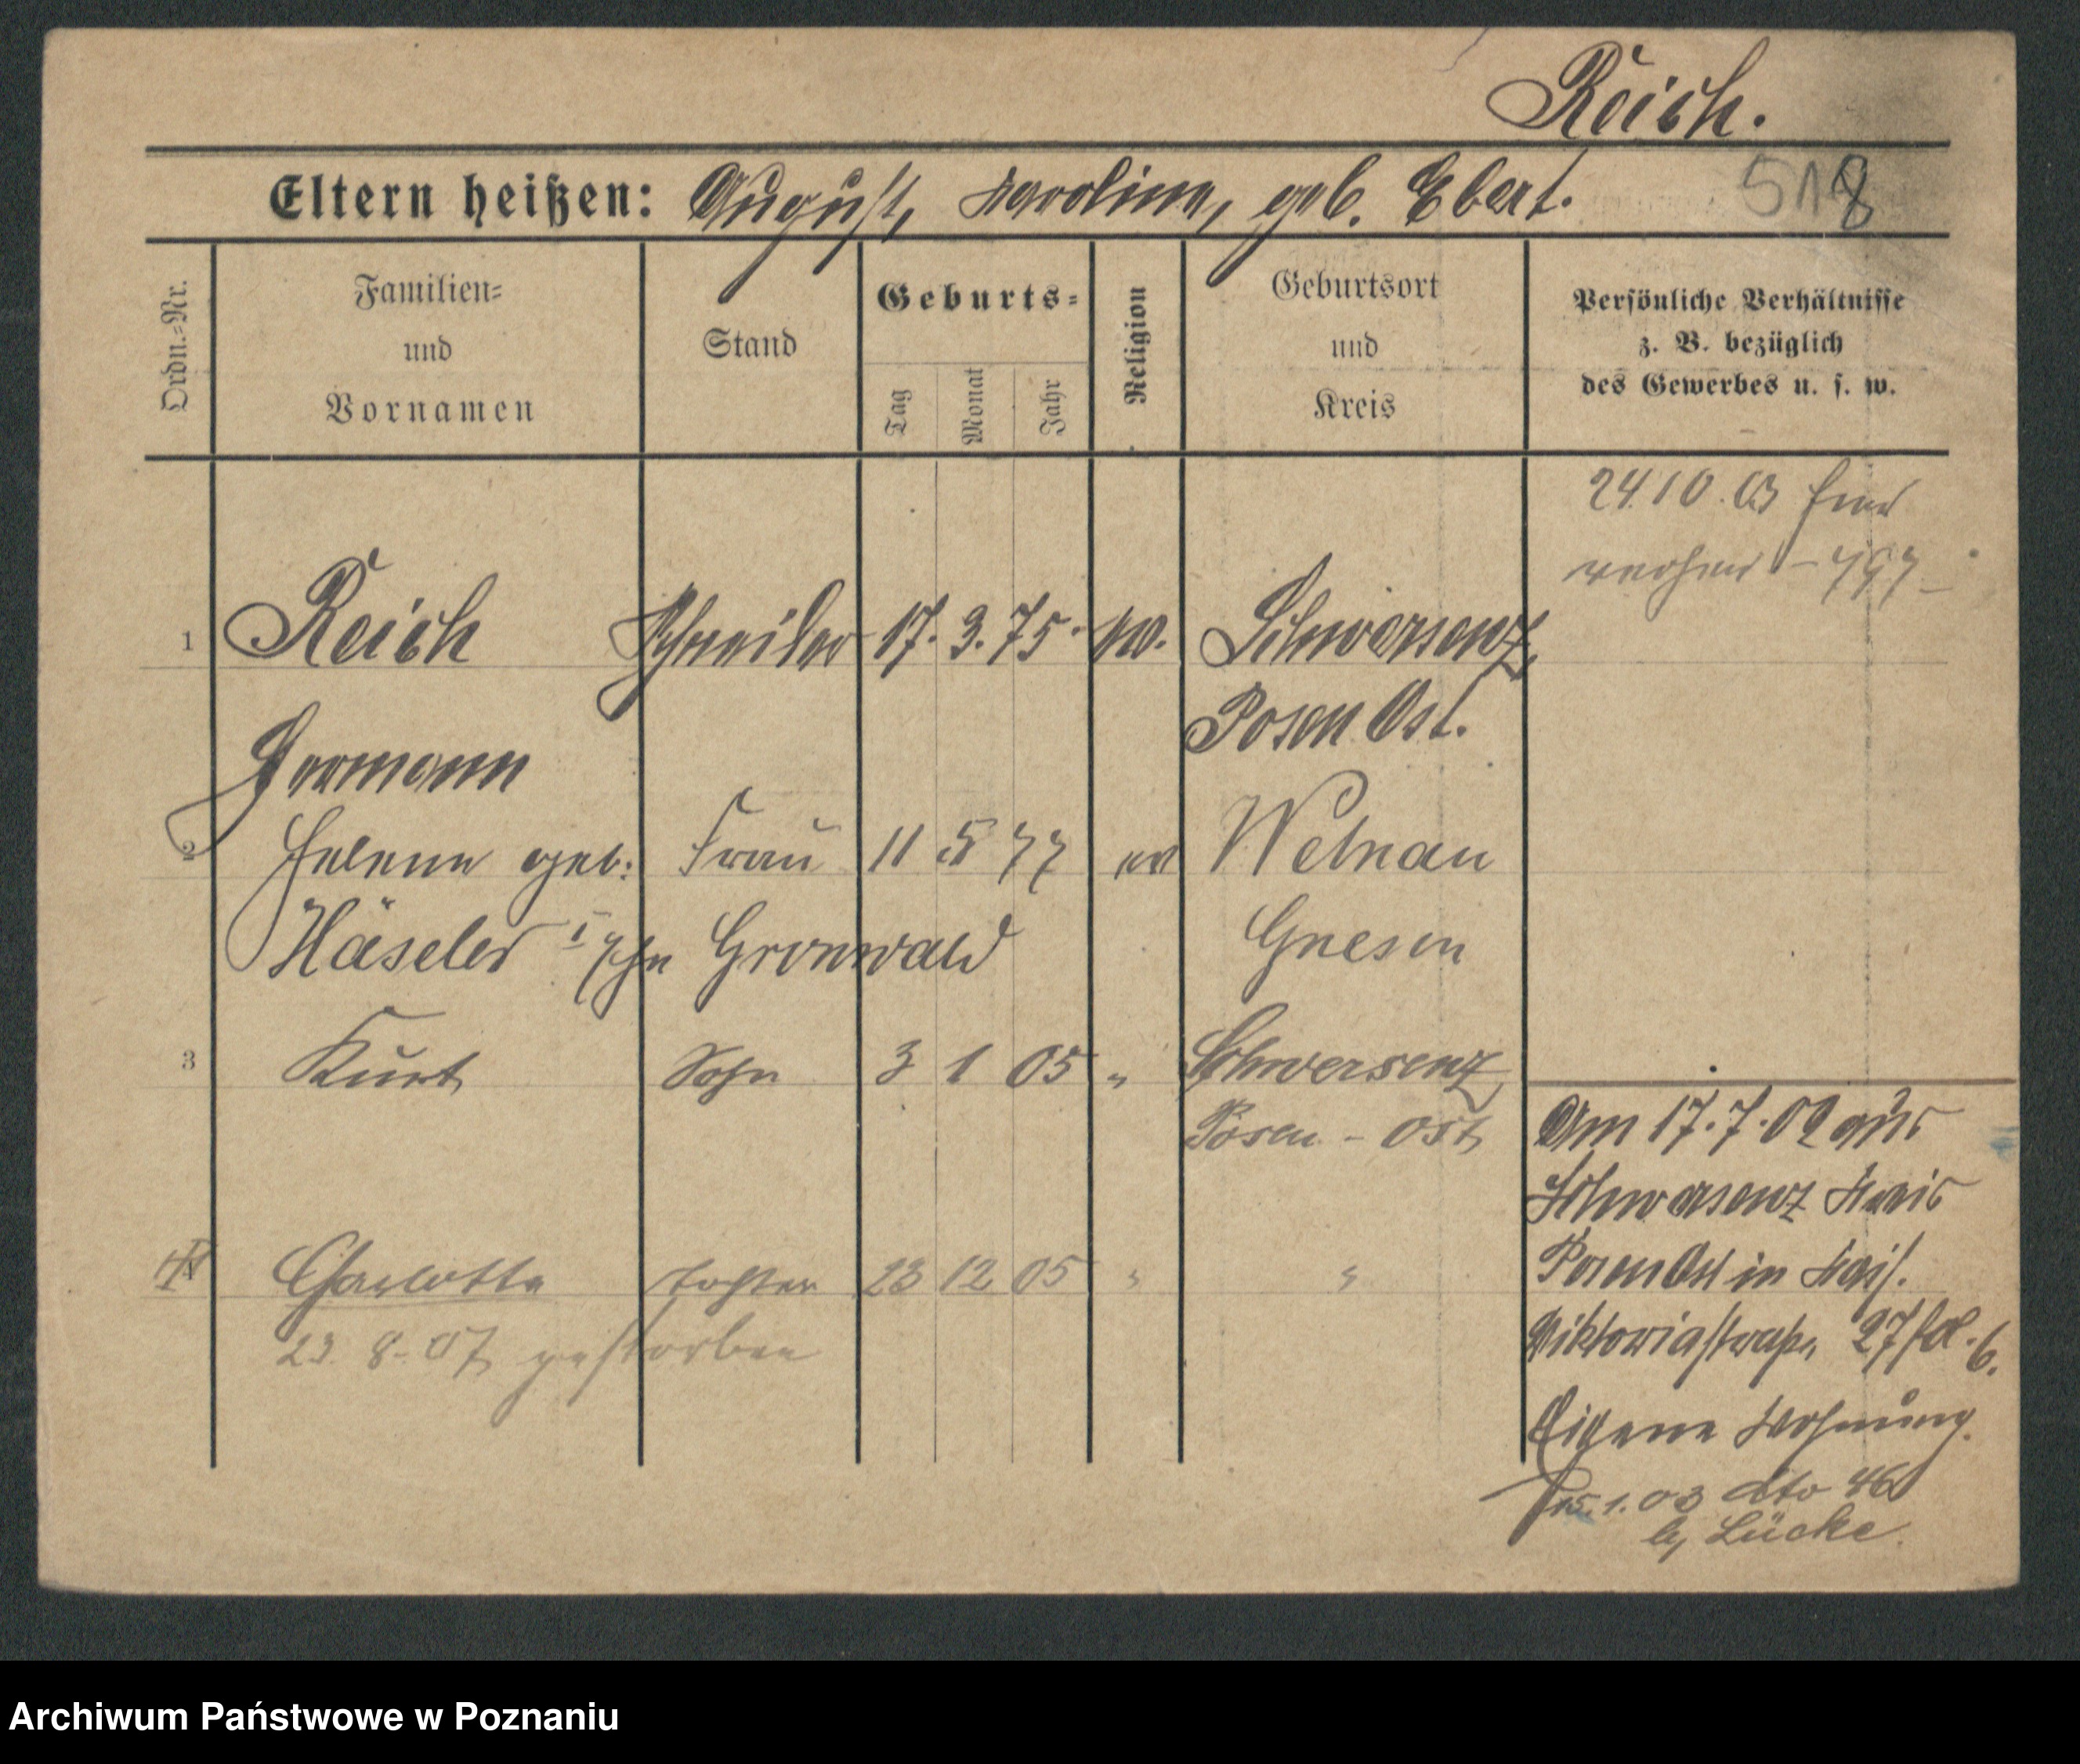 Reich.
Eltern heißen: August, Karoline, geb. Ebert.
518
Ordn.=Nr.
Familien=
und
Vornamen
Stand
Geburts=
Tag
Monat
Jahr
Religion
Geburtsort
und
Kreis
Persönliche Verhältnisse
z. B. bezüglich
des Gewerbes u. s. w.
24.10.03
1 Reich Schneider 17. 3. 75. ev. Schwersenz,
Posen Ost.
Hermann
2 Helene geb: Frau 11 5 77 ev Welnau
Häseler Gronwald Gnesen
3 Kurt Sohn 3 1 05 " Schwersenz
Posen - Ost
Am 17.7.02 aus
Schwersenz Kreis
Posen Ost in Kais.
Viktoriastraße 27 6.
Eigene Wohnung.
15.1.03 dto 46
bei Lücke.
4 Charlotte Tochter 23 12 05 " "
23. 8. 07 gestorben
Archiwum Państwowe w Poznaniu